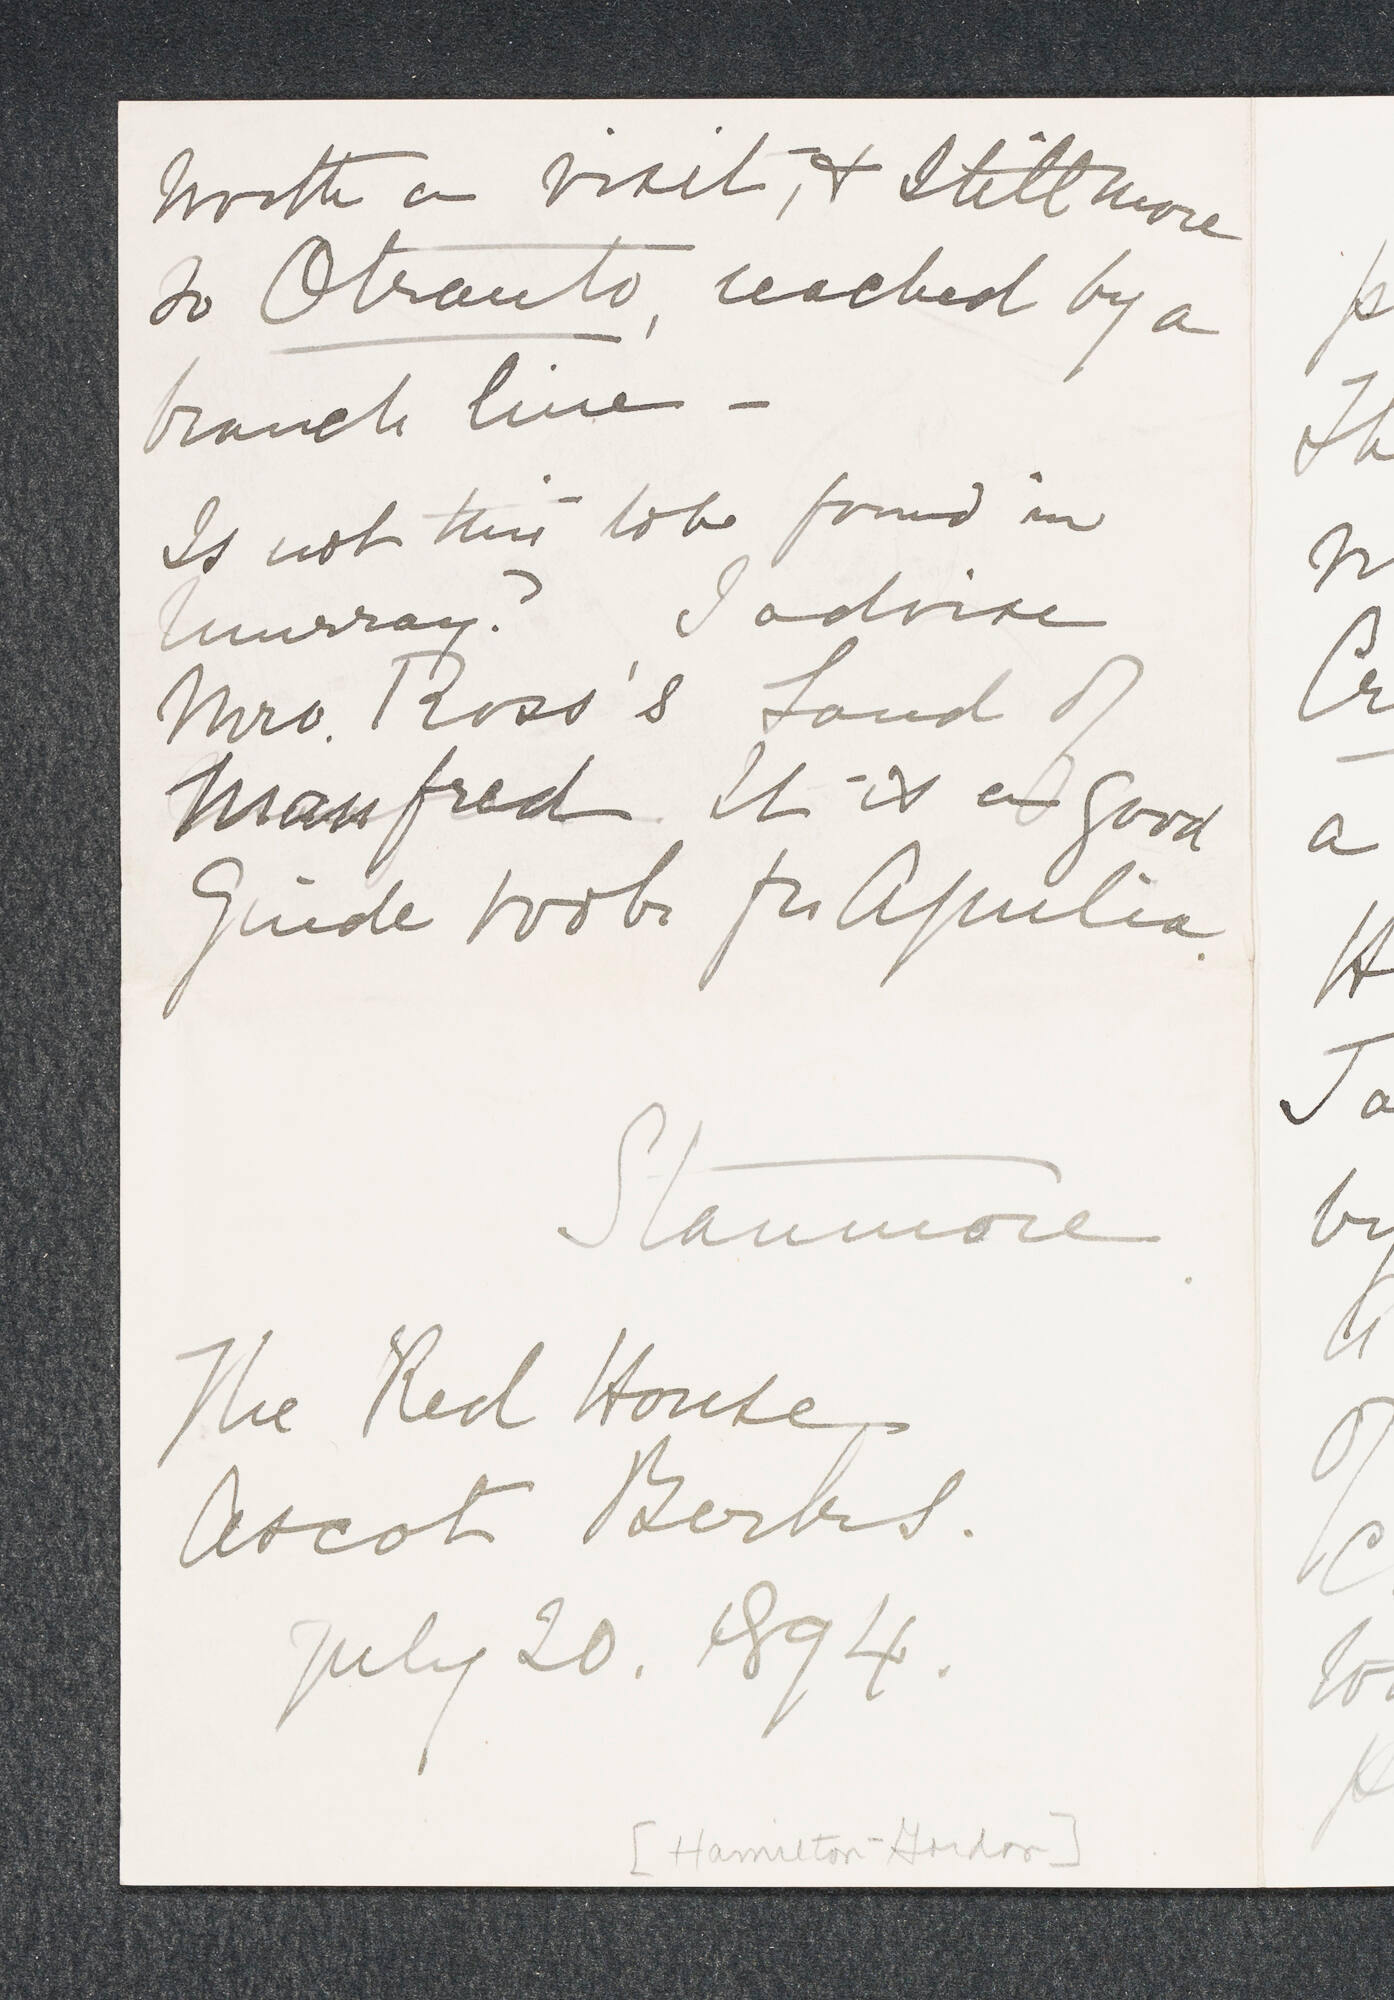 worth a visit, & still more
so Otranto, reached by a
branch line –
Is not this to be found in
Murray? I advise
Mrs. Ross's Land of
Manfred It is a good
Guide book for Apulia.
Stanmore.
The Red House
Ascot Berks.
July 20. 1894.
[Hamilton-Gordon]